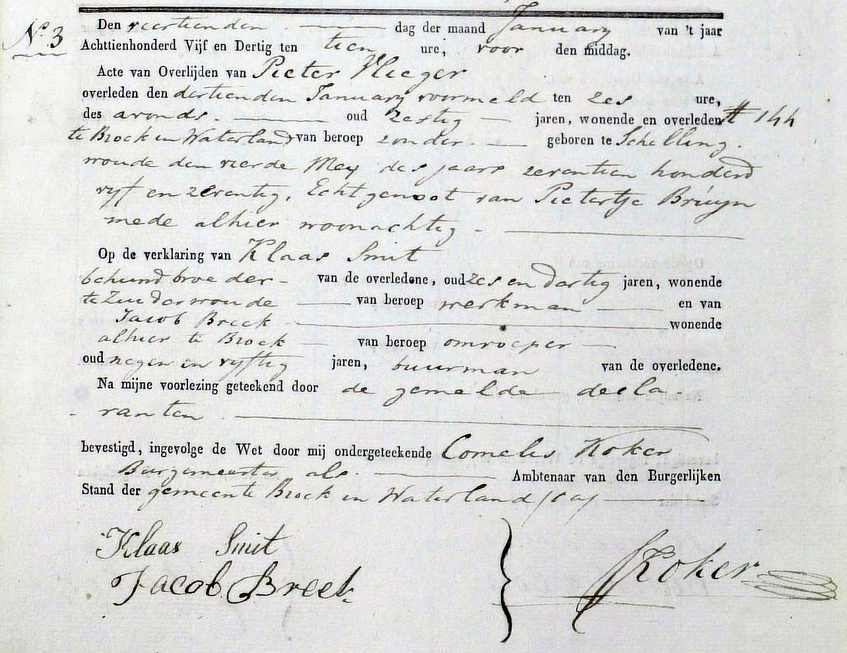 N. 3
Den viertienden dag der maand January van 't jaar
Achttienhonderd Vijf en Dertig ten tien ure, voor den middag.
Acte van Overlijden van Pieter Vlieger
overleden den dertienden January voormeld ten zes ure,
des avonds. oud zestig jaren, wonende en overleden # 144
te Broek in Waterland van beroep zonder geboren te Schelling.
woude den vierde Mey des jaars zeventien honderd
vyf en zeventig, Echtgenoot van Pietertje Bruyn
mede alhier woonachtig
Op de verklaring van Klaas Smit
behund broeder van de overledene, oud zes en dartig jaren, wonende
te Zuiderwoude van beroep werkman en van
Jacob Breek wonende
alhier te Broek van beroep omroeper
oud negen en vyftig jaren, buurman van de overledene.
Na mijne voorlezing geteekend door de gemelde decla
ranten
bevestigd, ingevolge de Wet door mij ondergeteekende Cornelis Koker
Burgemeester als Ambtenaar van den Burgerlijken
Stand der gemeente Broek in Waterland
Klaas Smit
Jacob Breek
Koker